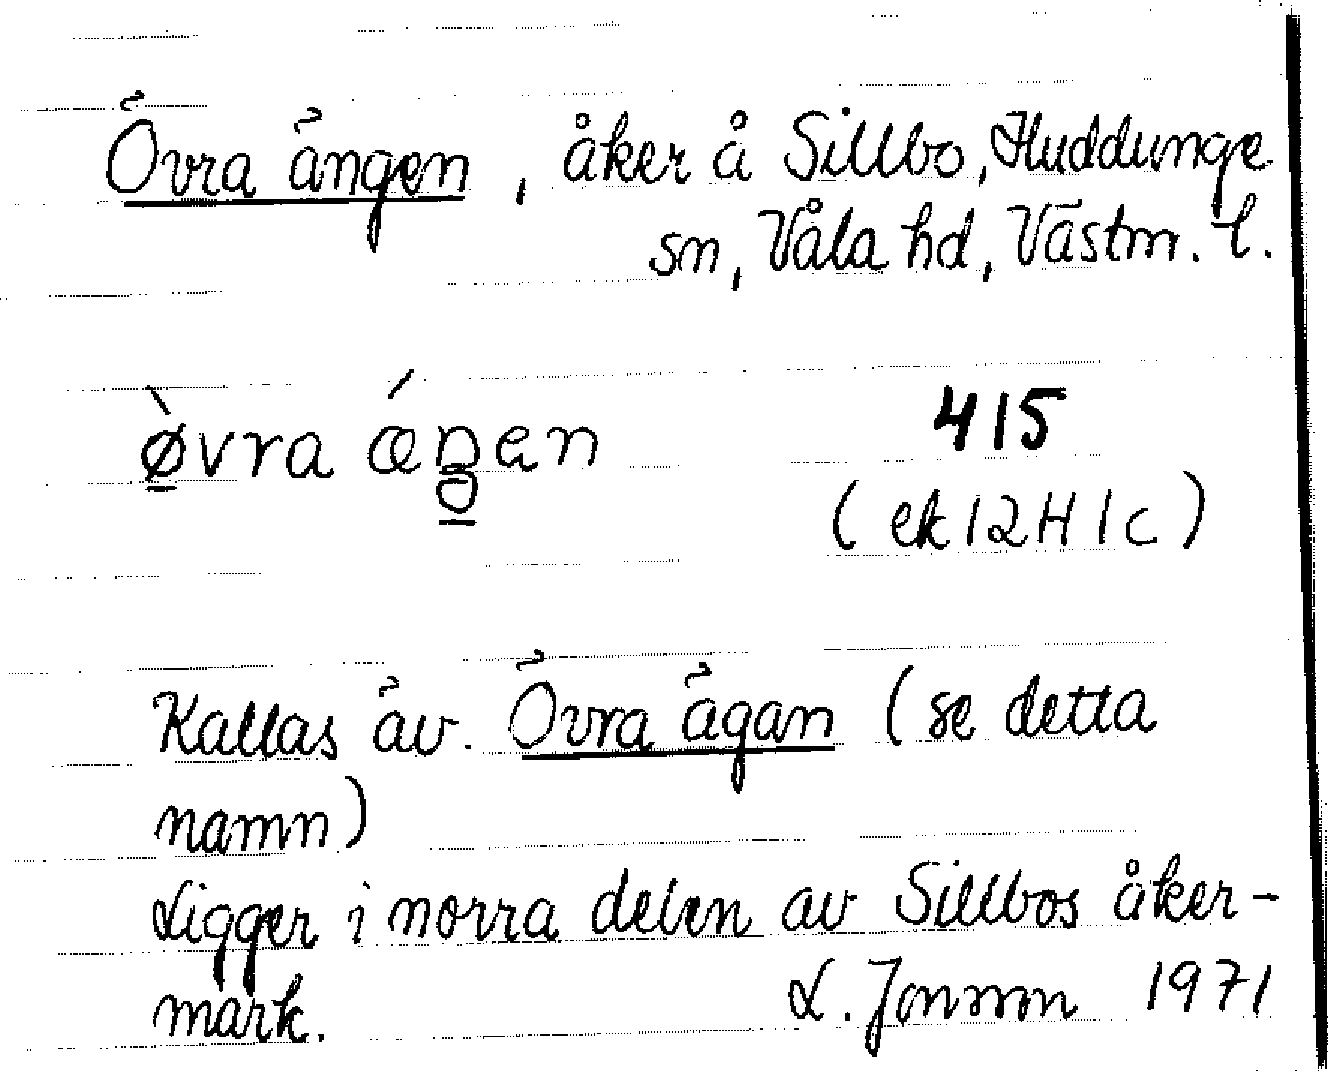 Övra ängen, åker å Sillbo, Huddunge
sn, Våla hd, Västm. l.
ø̀vra ǽŋen 415
(ek 12H 1c)
Kallas äv. Övra ägan (se detta
namn)
Ligger i norra delen av Sillbos åker-
mark. L. Jonsson 1971